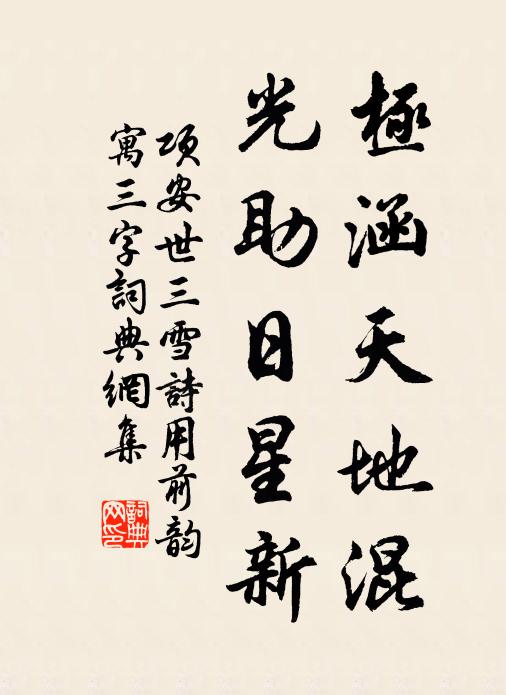 極涵天地混
光助日星新
項安世三雪詩用前韵
寓三字詞典網集
詞典
网印